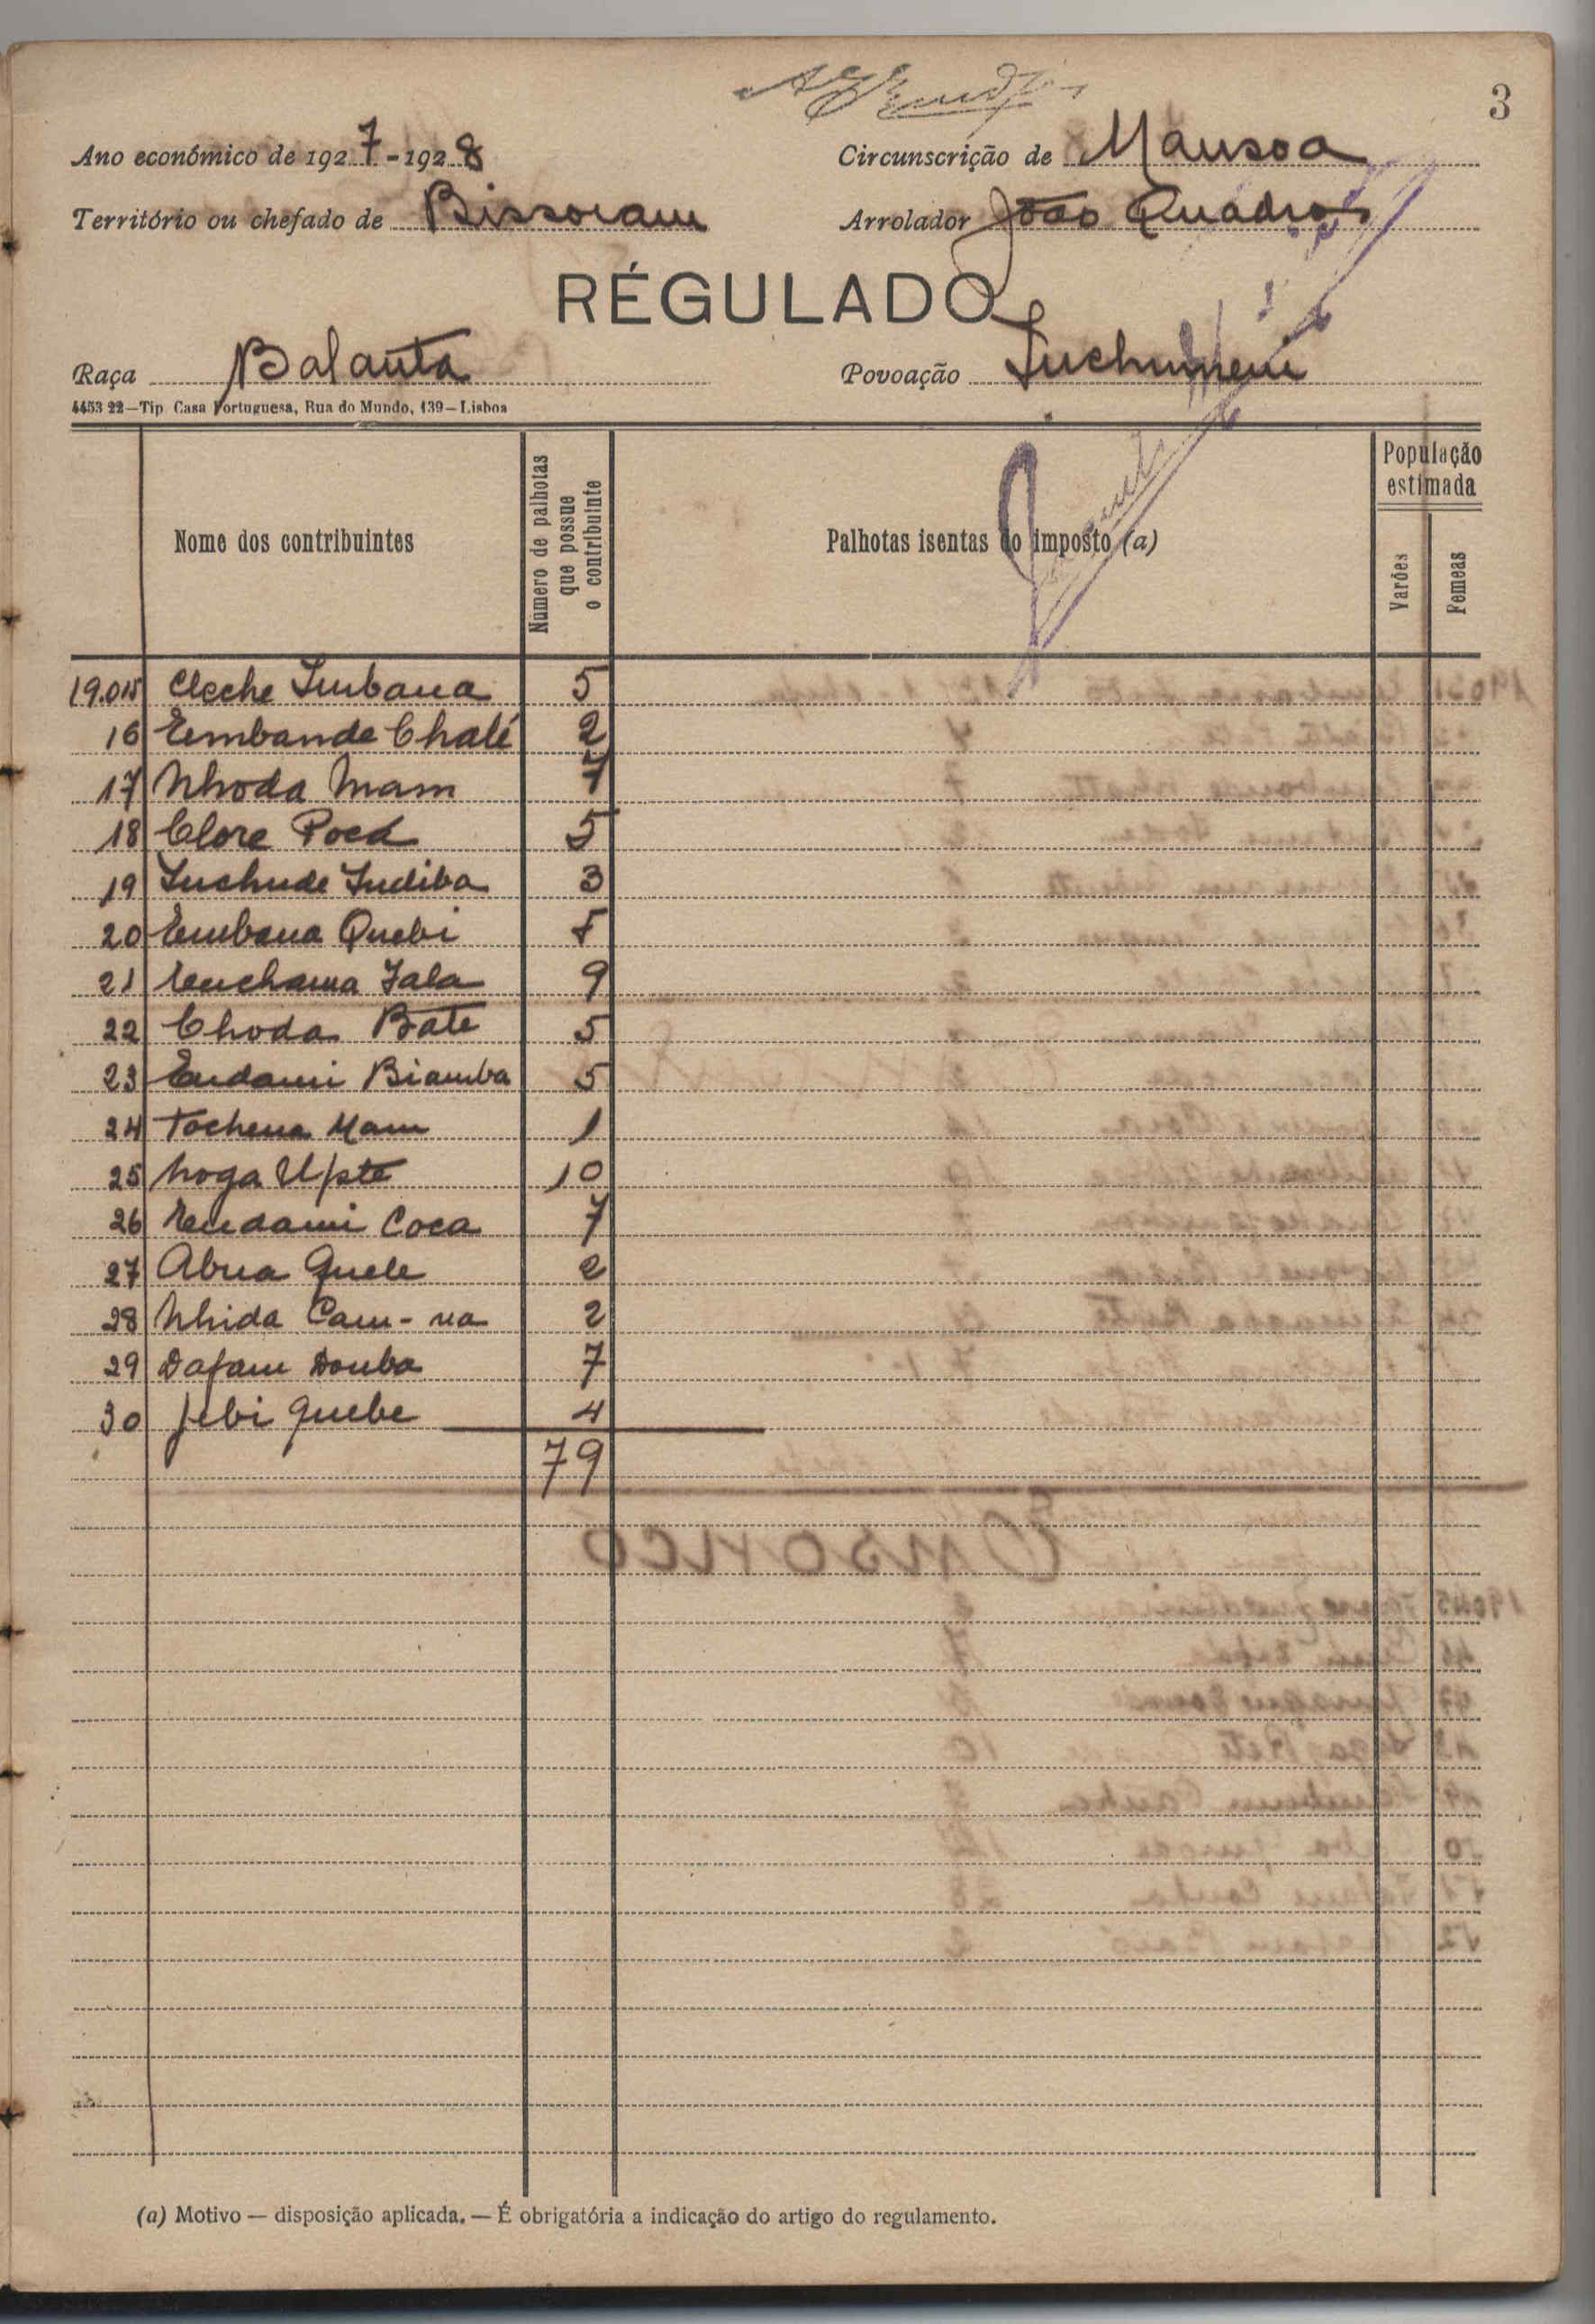 3
Ano económico de 1927-1928 Circunscrição de Mansoa
Território ou chefado de Bissoram Arrolador João Quadros
RÉGULADO
Raça Balanta Povoação
4453 22—Tip Casa Portuguesa, Rua do Mundo, 139—Lisboa
Nome dos contribuintes
Número de palhotas que possue o contribuinte
Palhotas isentas do imposto (a)
População estimada
Varões
Femeas
19.015 Cleche 5
16 Embande Chalé 2
17 Nhoda Mam 7
18 Clore Pocá 5
19 Inchude Indiba 3
20 Embana Quebi 5
21 Enchama Jala 9
22 Choda Bate 5
23 Endami Biamba 5
24 Tochena Mam 1
25 Noga 10
26 Endami Coca 7
27 Abna Quele 2
28 Nhida Cam-na 2
29 Dafam Donba 7
30 Jebi Quebe 4
79
(a) Motivo — disposição aplicada. — É obrigatória a indicação do artigo do regulamento.